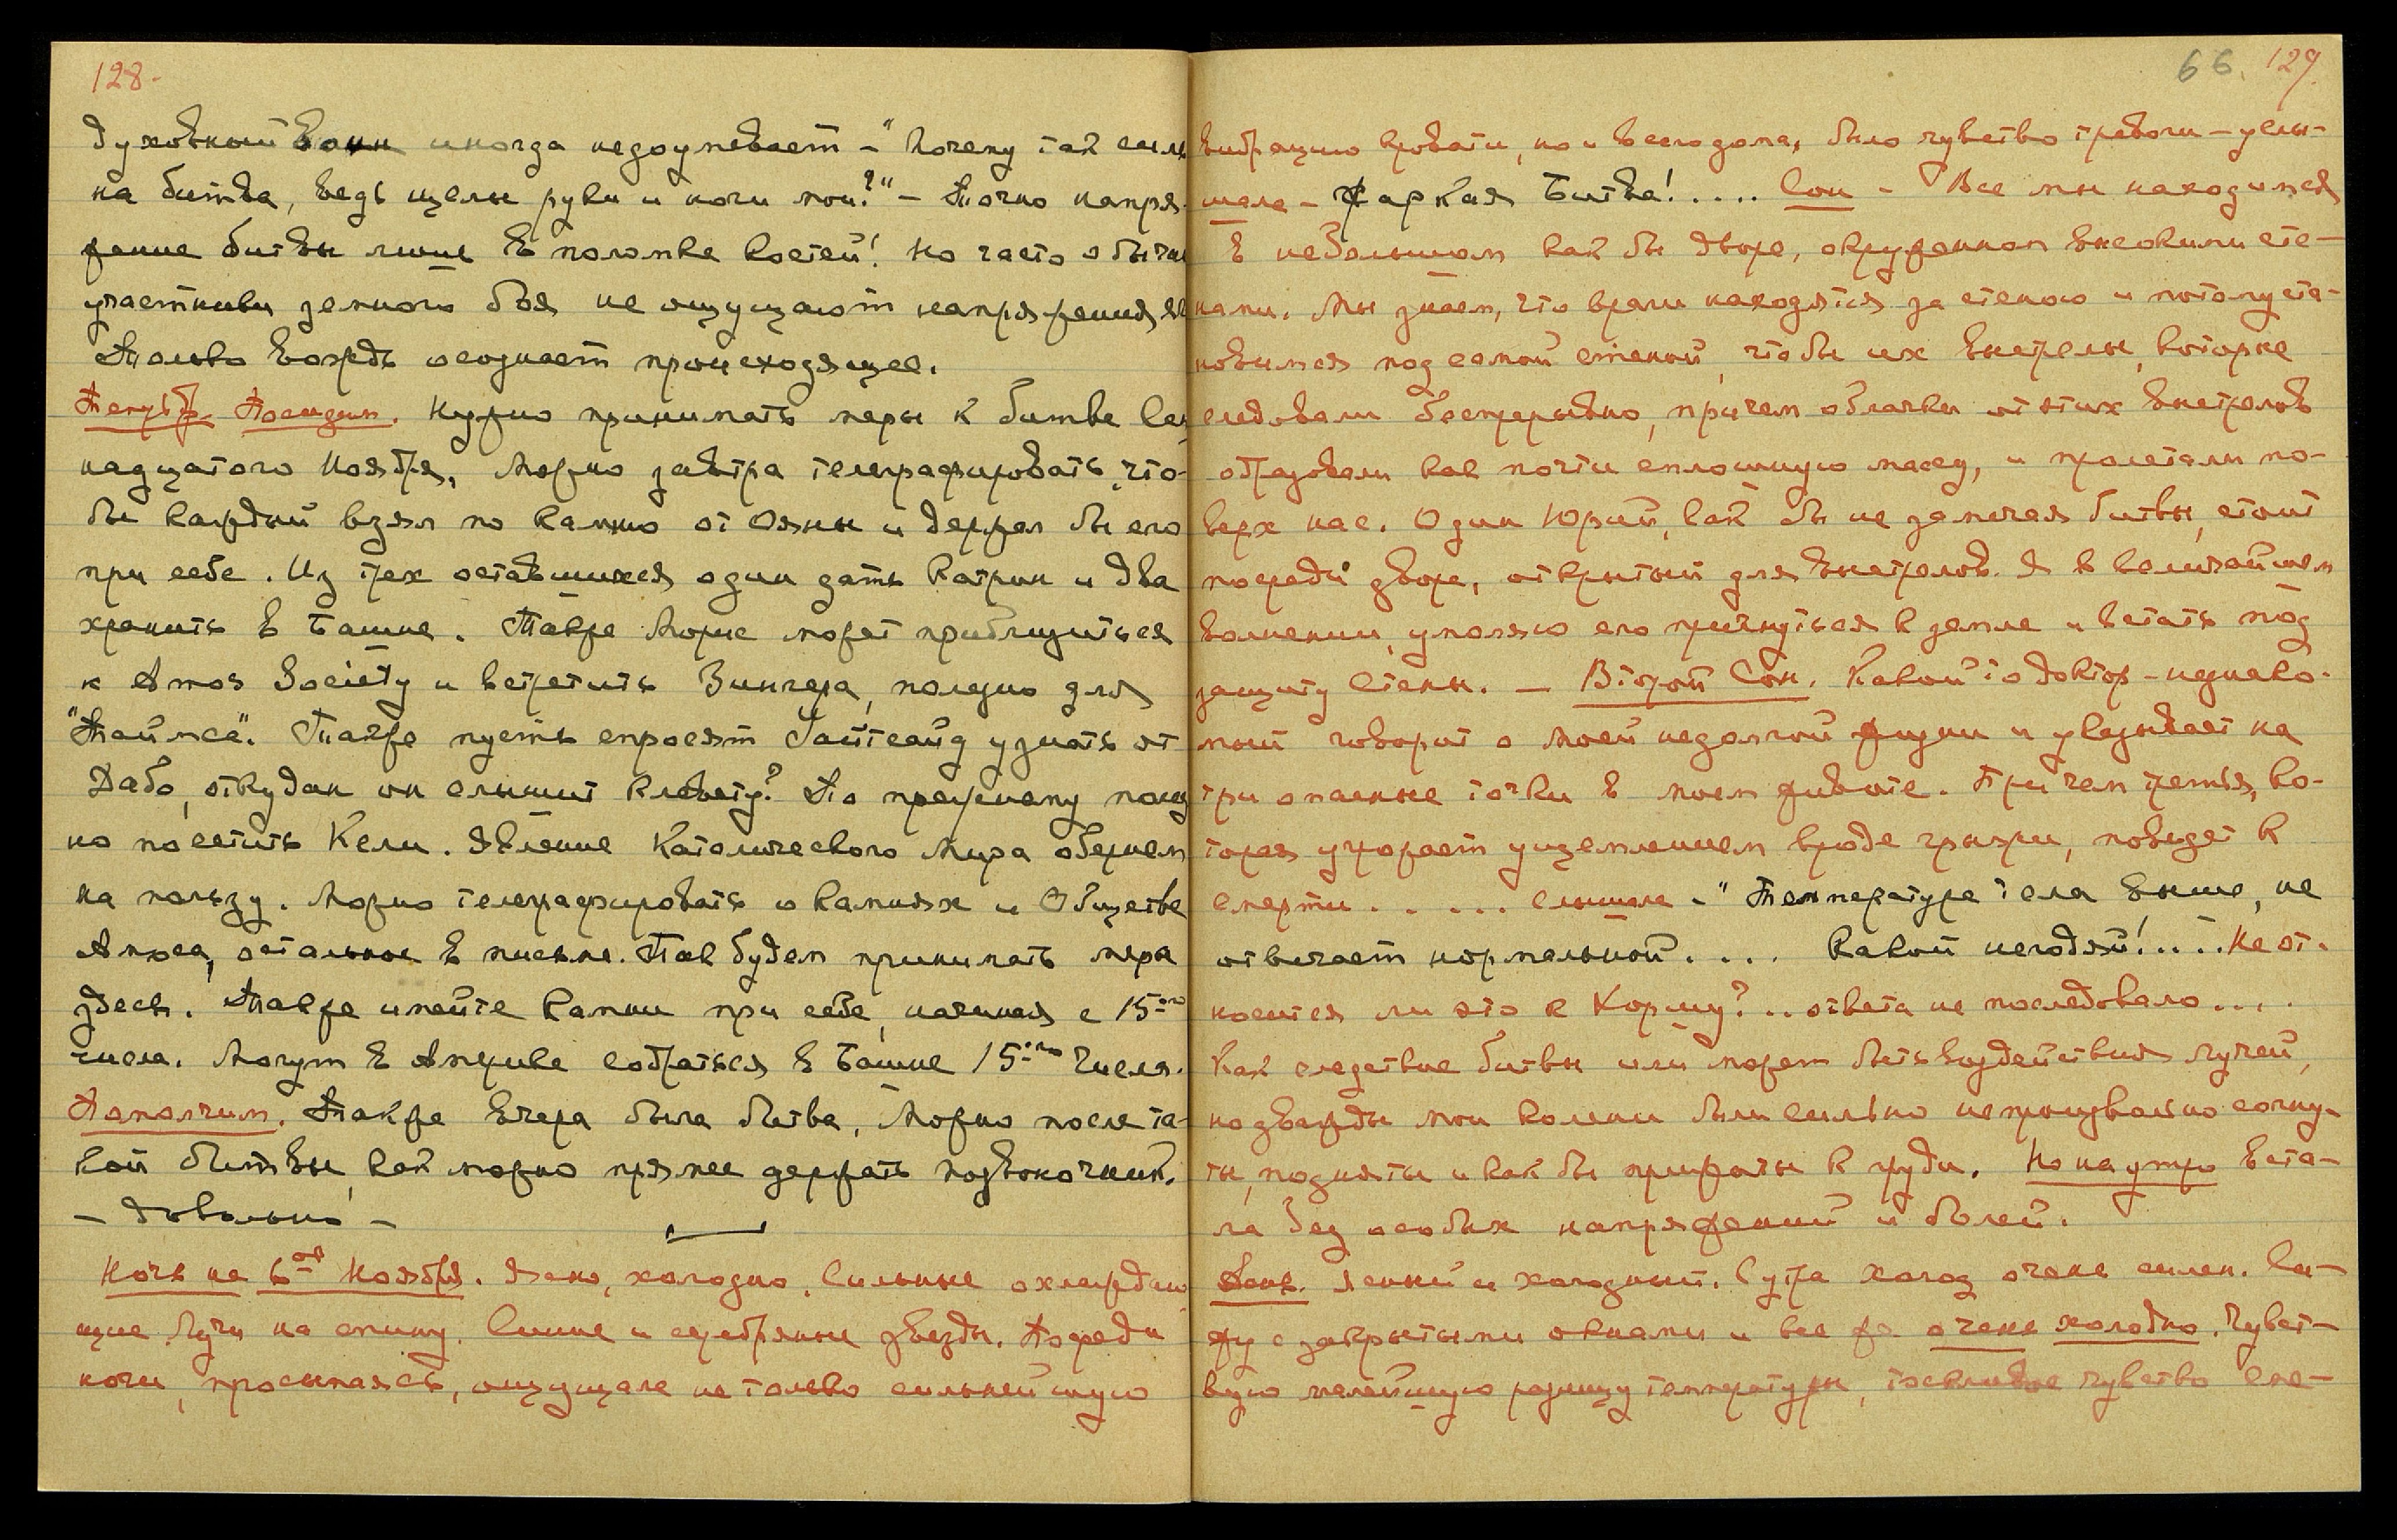 128.
духовный воин иногда недоумевает – "Почему так силь
на битва, ведь целы руки и ноги мои?" – Точно напря-
жение битвы лишь в поломке костей! Но часто обычн
участники земного боя не ощущают напряжения ея
Только вождь осознает происходящее.
Теперь др. Посидим. Нужно принимать меры к битве Сем
надцатого Ноября. Можно завтра телеграфировать, что-
бы каждый взял по камню от Ояны и держал бы его
при себе. Из трех оставшихся один дать Катрин и два
хранить в Башне. Также Морис может приблизиться
к Amos Society и встретить Вингера, полезно для
"Таймса". Также пусть спросят Уайтсайд узнать от
Дабо, откуда он слышит клевету? По прежнему полез
но посетить Кели. Явление Католического Мира обернем
на пользу. Можно телеграфировать о камнях и Обществе
Амоса, остальное в письме. Так будем принимать меры
здесь. Также имейте камни при себе, начиная с 15ого
числа. Могут в Америке собраться в Башне 15ого числа.
Помолчим. Также вчера была битва, можно после та-
кой битвы, как можно прямее держать позвоночник.
– Довольно –
Ночь на 6ое Ноября. Ясно, холодно. Сильные охлаждаю
щие Лучи на спину. Синие и серебряные звезды. Посреди
ночи, просыпаясь, ощущала не только сильнейшую
66. 129.
вибрацию кровати, но и всего дома, было чувство тревоги – услы-
шала – Жаркая Битва!.... Сон – Все мы находимся
в небольшом как бы дворе, окруженном высокими сте-
нами. Мы знаем, что враги находятся за стеною и потому ста-
новимся под самой стеной, чтобы их выстрелы, которые
следовали беспрерывно, причем облачки от этих выстрелов
образовали как почти сплошную массу, и пролетали по-
верх нас. Один Юрий, как бы не замечая битвы, стоит
посреди двора, открытый для выстрелов. Я в величайшем
волнении, умоляю его пригнуться к земле и встать под
защиту стены. – Второй Сон. Какой то доктор – незнако-
мый говорит о моей недолгой жизни и указывает на
три опасные точки в моем животе. При чем третья, ко-
торая угрожает ущемлением вроде грыжи, поведет к
смерти..... слышала – "Температура тела выше, не
отвечает нормальной.... Какой негодяй!.... Не от-
носится ли это к Хоршу?.. ответа не последовало....
Как следствие битвы или может быть воздействия лучей,
но дважды мои колени были сильно непроизвольно согну-
ты, подняты и как бы прижаты к груди. Но на утро вста-
ла без особых напряжений и болей.
День. Ясный и холодный. С утра холод очень силен. Си-
жу с закрытыми окнами и все же очень холодно. Чувст-
вую малейшую разницу температуры, тоскливое чувство